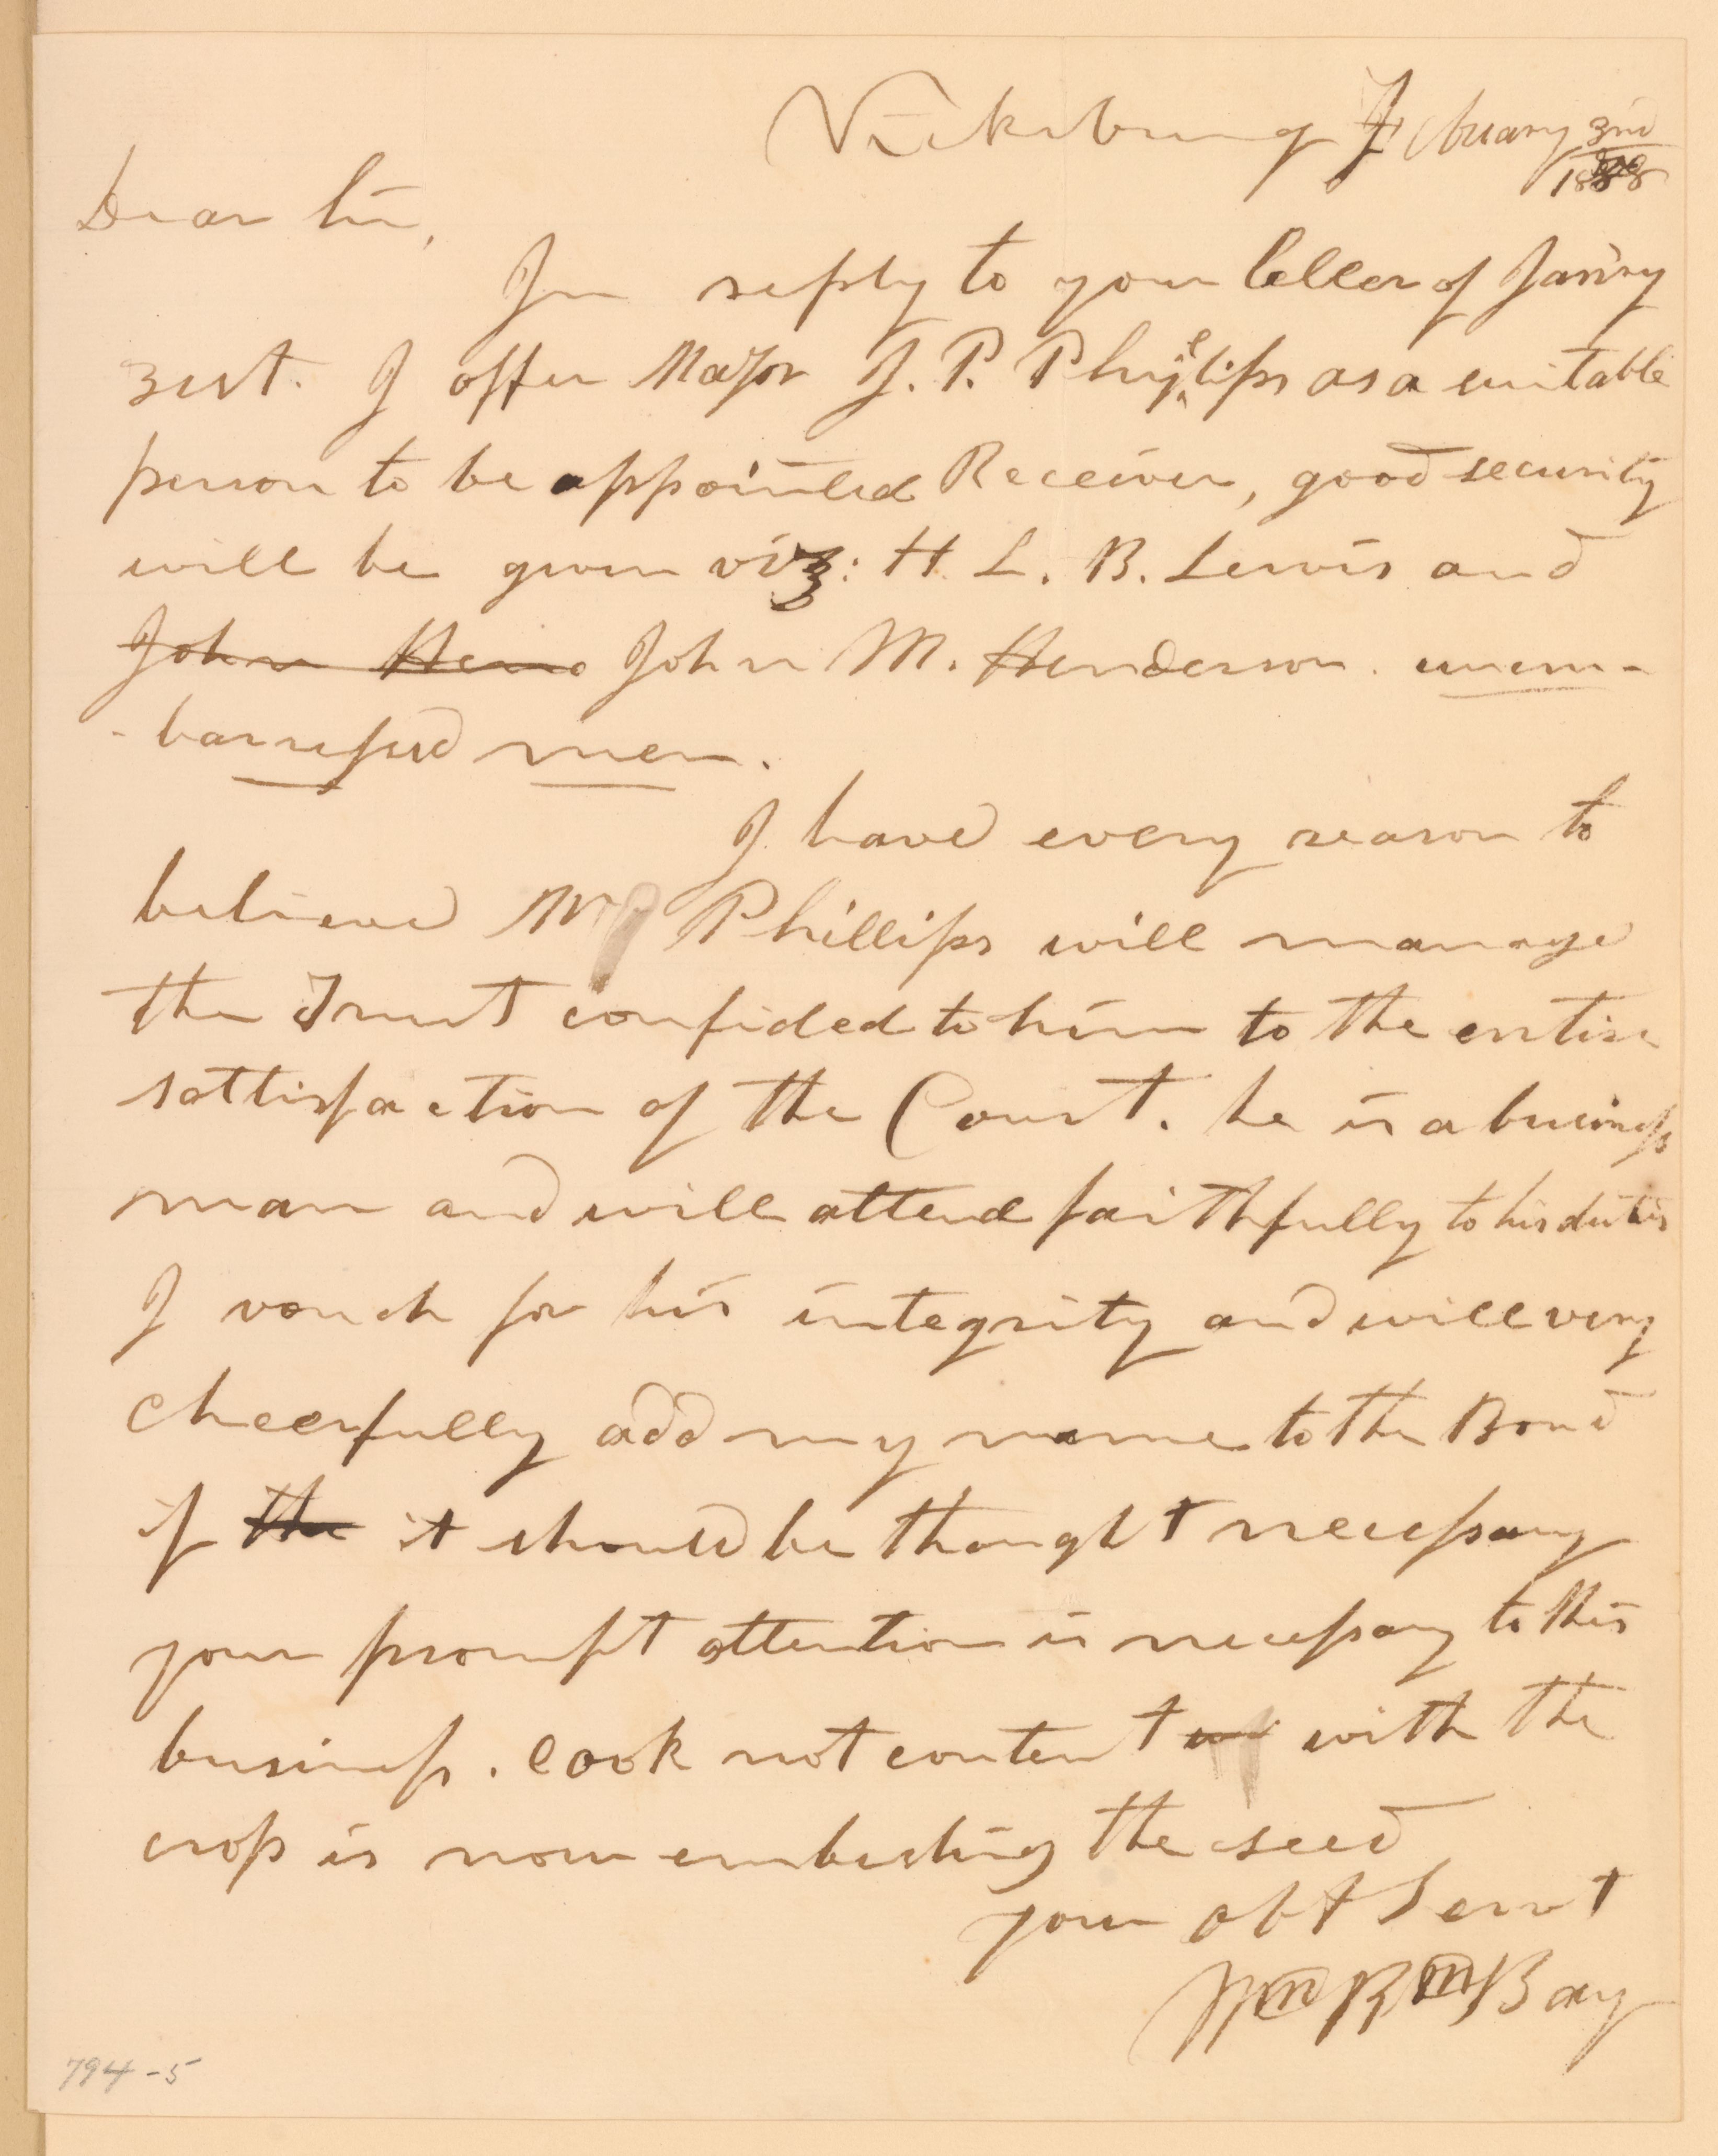 Vicksburg February 3rd
1838
Dear Sir,
In reply to your letter of Janry
31st. I offer Major J. P. Phillips as a suitable
person to be appointed Receiver, good security
will be given viz: H. L. B. Lewis and
John Hen John M. Henderson. unem-
-barrassed men.
I have every reason to
believe Mr Phillips will manage
the Trust confided to him to the entire
sattisfaction of the Court. he is a business
man and will attend faithfully to his duties
I vouch for his integrity and will very
cheerfully add my name to the Bond
if the it should be thought necessary
your prompt attention is necessary to this
business. Cook not content wi with the
crop is now embezling the seed
your obt Servt
Wm R
794-5